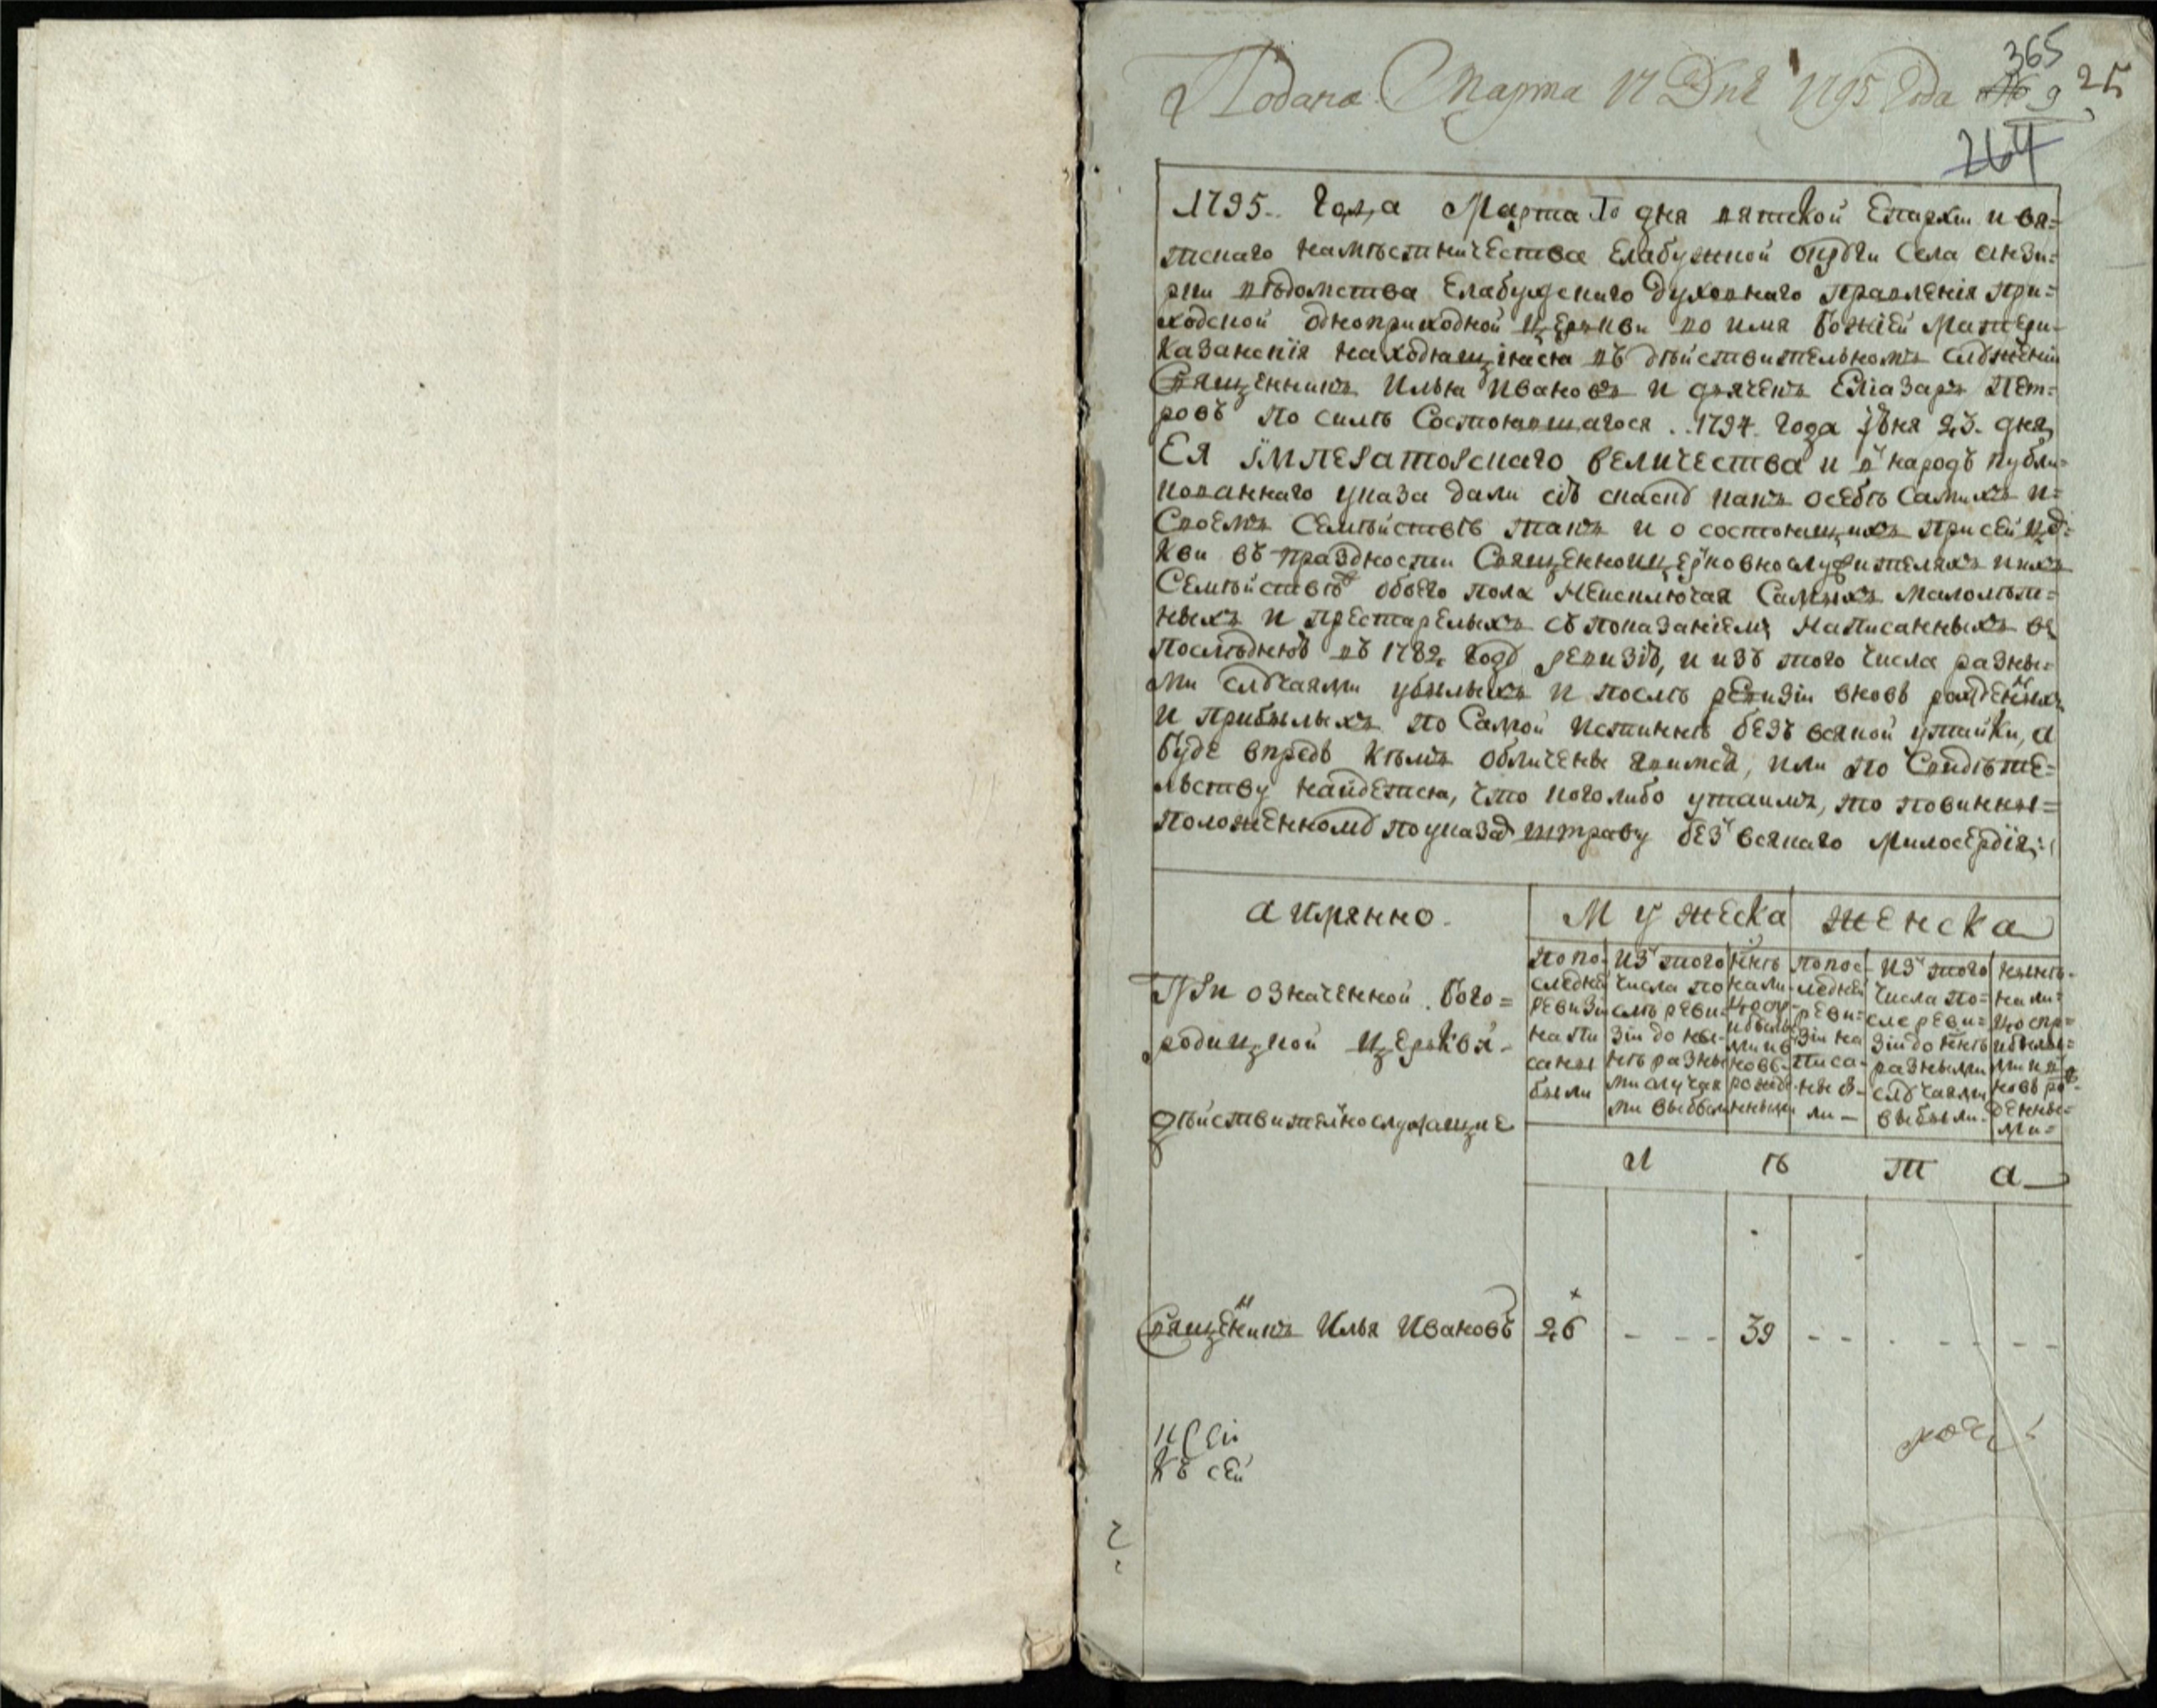 Подана Марта 17 Дня 1795 Года № 9
365
25
264
1795. Года Марта дня вятской Епархіи и вя=
тскаго намѣстничества Елабужной округи Села анзи=
рки вѣдомства Елабужскаго Духовнаго правленія при=
ходской одноприходной церкви во имя Божіей Матери
Казанскія находящіяся въ дѣйствительномъ служеніи
Священникъ Илья Ивановъ и дьячекъ Елиазаръ Пет=
ровъ по силѣ Состоявшагося 1794 года Іюня 23 дня
ЕЯ ІМПЕРАТОРСКАГО ВЕЛИЧЕСТВА и в народъ публи=
кованнаго указа дали сію скаску какъ осебѣ самихъ и=
Своемъ Семѣйствѣ такъ и о состоящихъ при сей це=
кви въ праздности Священноцерковнослужителяхъ и ихъ
Семѣйствѣ обоего пола неисключая Самыхъ малолѣт=
ныхъ и престарелыхъ съ показаніемъ написанныхъ въ
последнею въ 1782 году ревизію, и изъ того числа разны=
ми случаями убылыхъ и послѣ ревизіи вновь рожденныхъ
и прибылыхъ по Самой истиннѣ безъ всякой утайки, а
буде впредь кѣмъ обличены явимся, или по Свидѣте=
льству найдется, что коголибо утаилъ, то повинны=
положенному по указу штрафу без всякаго Милосердія:
а имянно.
Мужеска
женска
При означенной Бого=
родицкой церкви
дѣйствительнослужащие
по по=
следней
ревизи
напи
саны
были
из того
числа по
слѣ реви=
зіи до ны=
нѣ разны
ми случая
ми выбыли
ннѣ
на ли=
цо спр=
ибылы
ми и в
новь
рожде
нными
по пос=
ледней
реви=
зіи на
писа=
ны бы=
ли
из того
числа по=
сле реви=
зіи до ннѣ
разными
случаями
выбыли.
нынѣ
на ли=
цо спр=
ибылы=
ми и в
новь ро=
жденны=
ми=
л ѣ т а
Священникъ Илья Ивановъ 26 - - - 39 - - - - - - -
къ сей